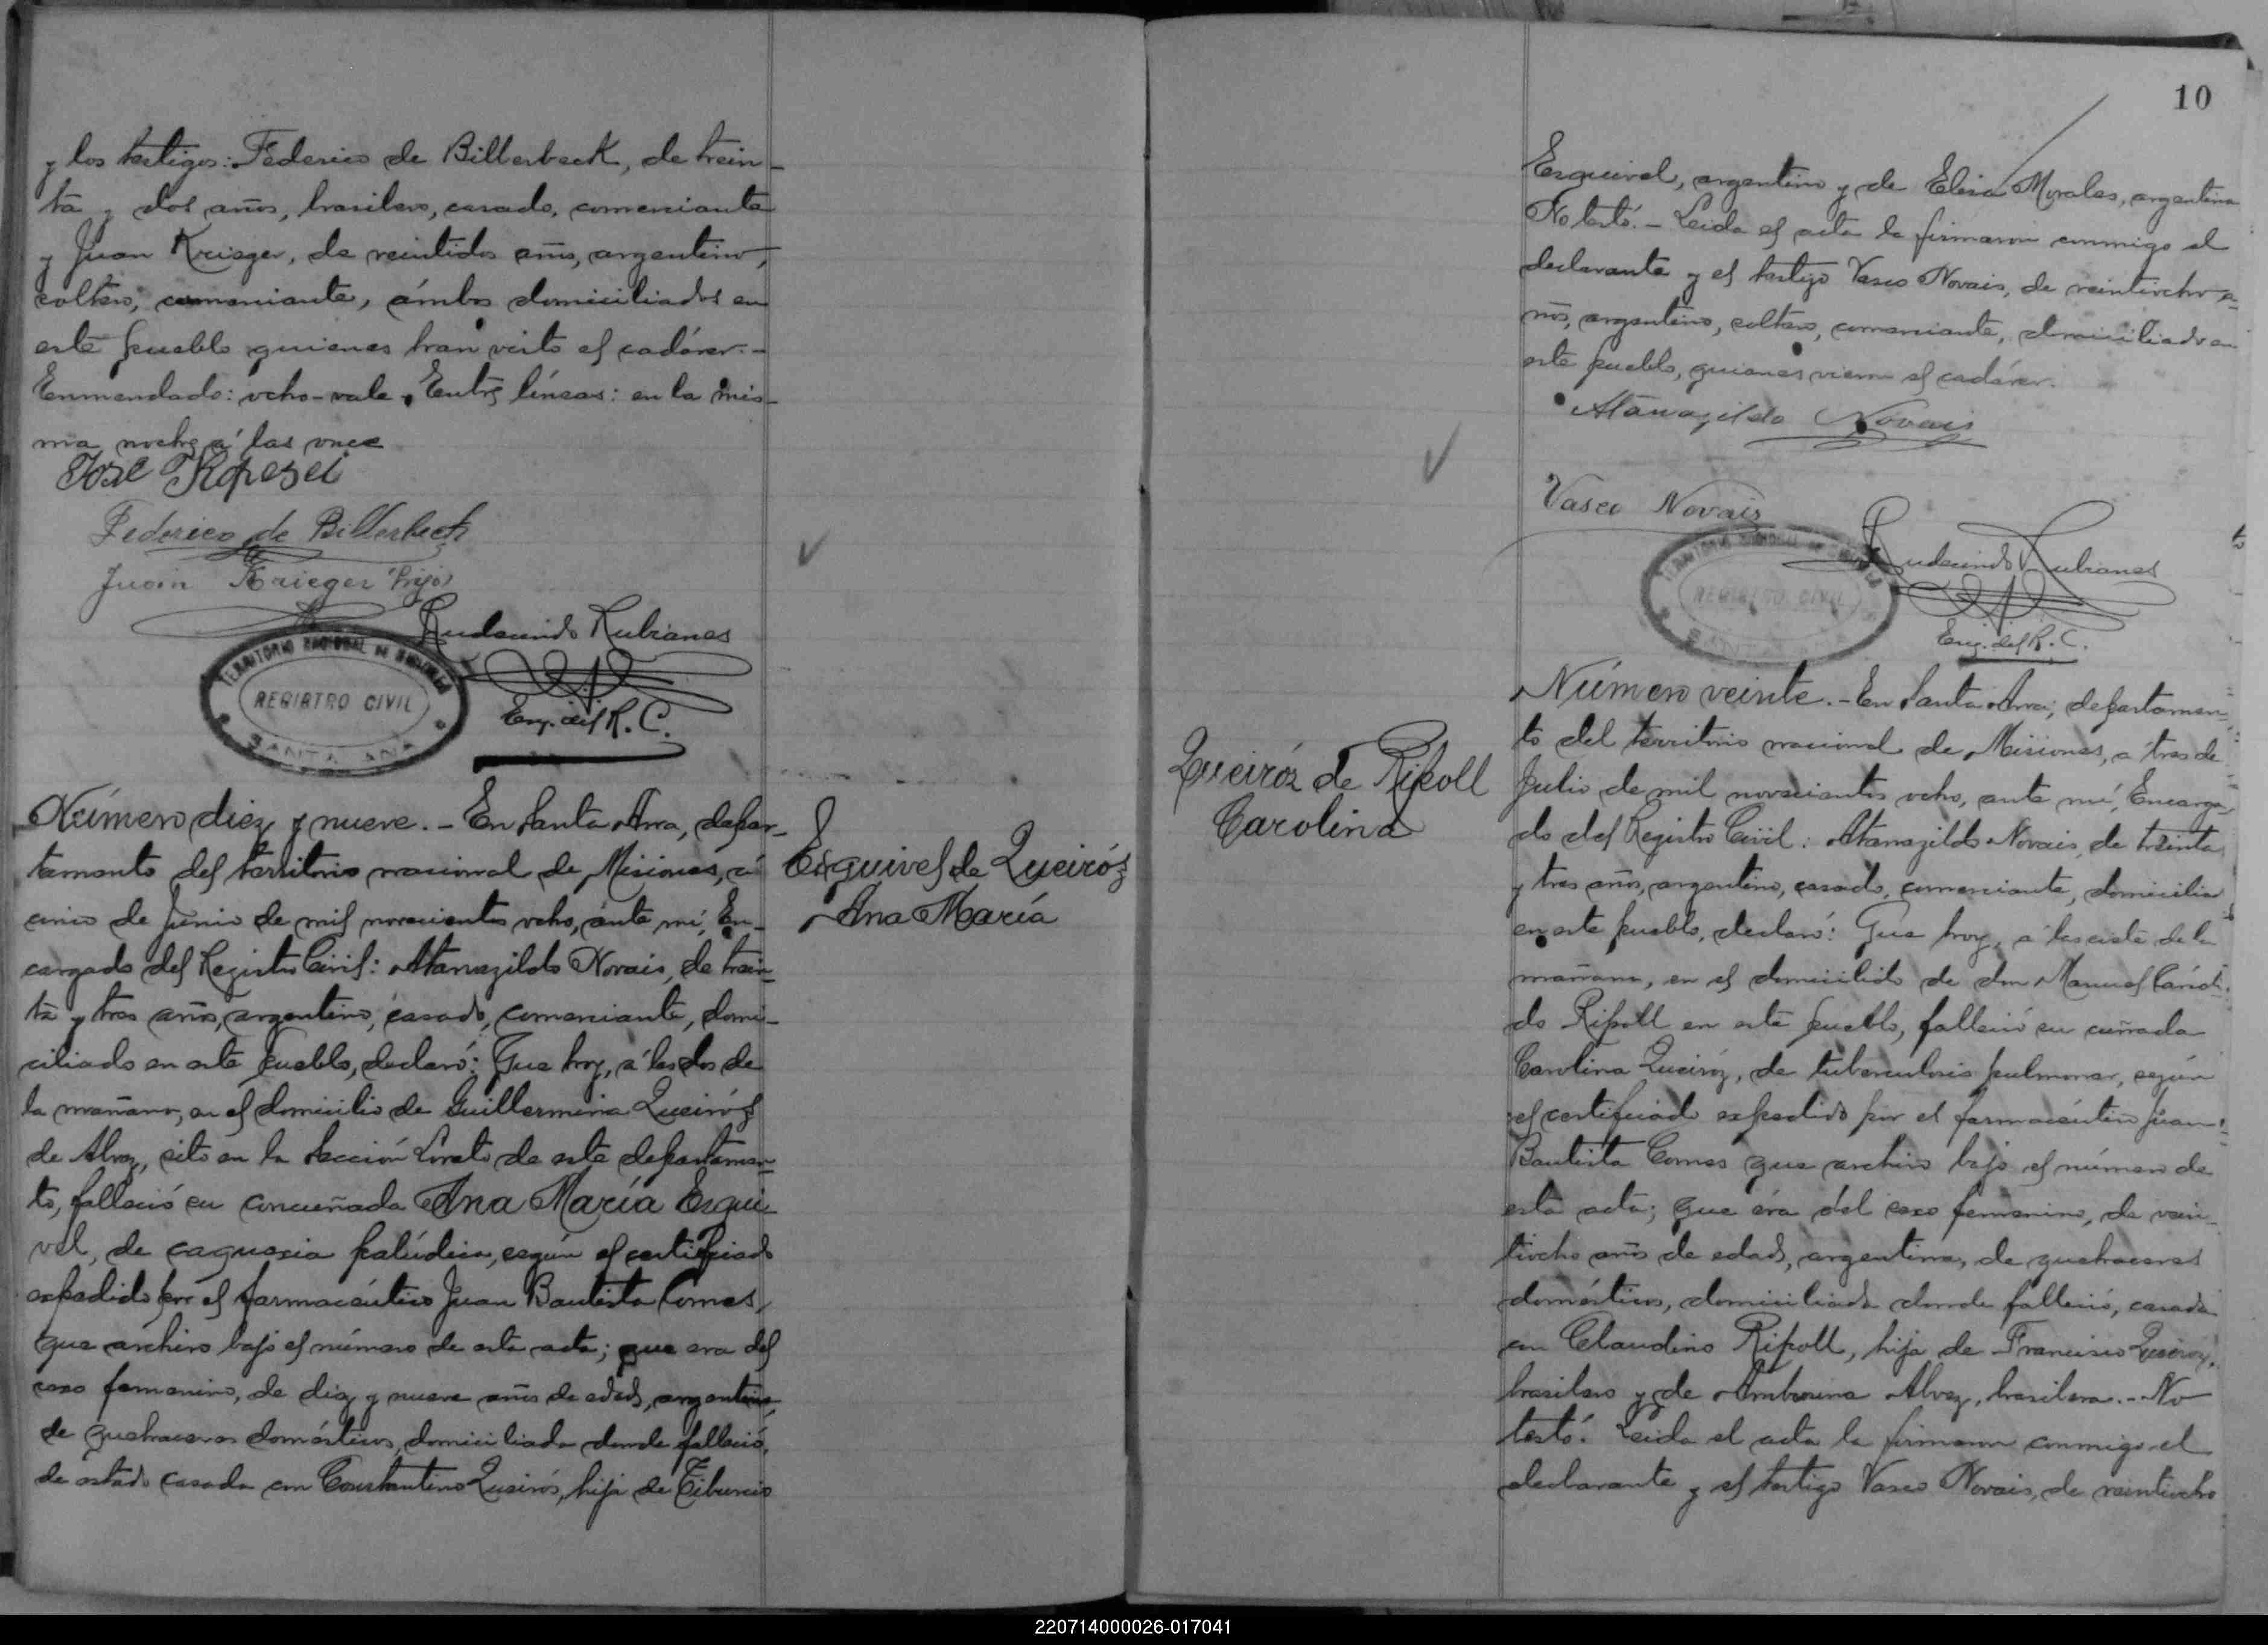 y los testigos: Federico de Billerbeck, de trein-
ta y dos años, brasilero, casado, comerciante
y Juan Krieger, de veintidos años, argentino,
soltero, comerciante, ámbos domiciliados en
este pueblo quienes han visto el cadáver.-
Enmendado: ocho-vale. Entre líneas: en la mis-
ma noche á las once
José
Federico de Billerbeck
Juan Krieger hijo
Rudecindo Rubianes
Enc. del R. C.
TERRITORIO NACIONAL DE MISIONES
REGISTRO CIVIL
SANTA ANA
Número diez y nueve.- En Santa Ana, depar-
tamento del territorio nacional de Misiones, á
cinco de Junio de mil novecientos ocho, ante mí, En-
cargado del Registro Civil: Atanagildo Novais, de trein-
ta y tres años, argentino, casado, comerciante, domi-
ciliado en este pueblo, declaró: Que hoy, á las dos de
la mañana, en el domicilio de Guillermina Queiróz
de Alvez, sito en la sección Loreto de este departamen-
to, falleció su concuñada Ana María Esqui-
vel, de caquexia palúdica, según el certificado
expedido por el farmacéutico Juan Bautista Comes,
que archivo bajo el número de esta acta; que era del
sexo femenino, de diez y nueve años de edad, argentina,
de quehaceres domésticos, domiciliada donde falleció,
de estado casada con Constantino Queirós, hija de Tiburcio
Esquivel de Queiróz
Ana María
10
Esquivel, argentino y de Elisa Morales, argentina
No testó.- Leida el acta la firmaron conmigo el
declarante y el testigo Vasco Novais, de veintiocho a-
ños, argentino, soltero, comerciante, domiciliado en
este pueblo, quienes vieron el cadáver.
Atanagildo Novais
Vasco Novais
Rudecindo Rubianes
Enc. del R. C.
TERRITORIO NACIONAL DE MISIONES
REGISTRO CIVIL
SANTA ANA
Queiróz de Ripoll
Carolina
Número veinte.- En Santa Ana, departamen-
to del territorio nacional de Misiones, á tres de
Julio de mil novecientos ocho, ante mí, Encarga-
do del Registro Civil: Atanagildo Novais, de treinta
y tres años, argentino, casado, comerciante, domicilia
en este pueblo, declaró: Que hoy, á las siete de la
mañana, en el domicilio de don Manuel Cándi-
do Ripoll en este pueblo, falleció su cuñada
Carolina Queiróz, de tuberculosis pulmonar, según
el certificado expedido por el farmacéutico Juan
Bautista Comes que archivo bajo el número de
esta acta; que éra del sexo femenino, de vein-
tiocho años de edad, argentina, de quehaceres
domésticos, domiciliada donde falleció, casada
con Claudino Ripoll, hija de Francisco Queiroz,
brasilero y de Ambrosina Alvez, brasilera.- No
testó. Leida el acta la firmaron conmigo el
declarante y el testigo Vasco Novais, de veintiocho
220714000026-017041